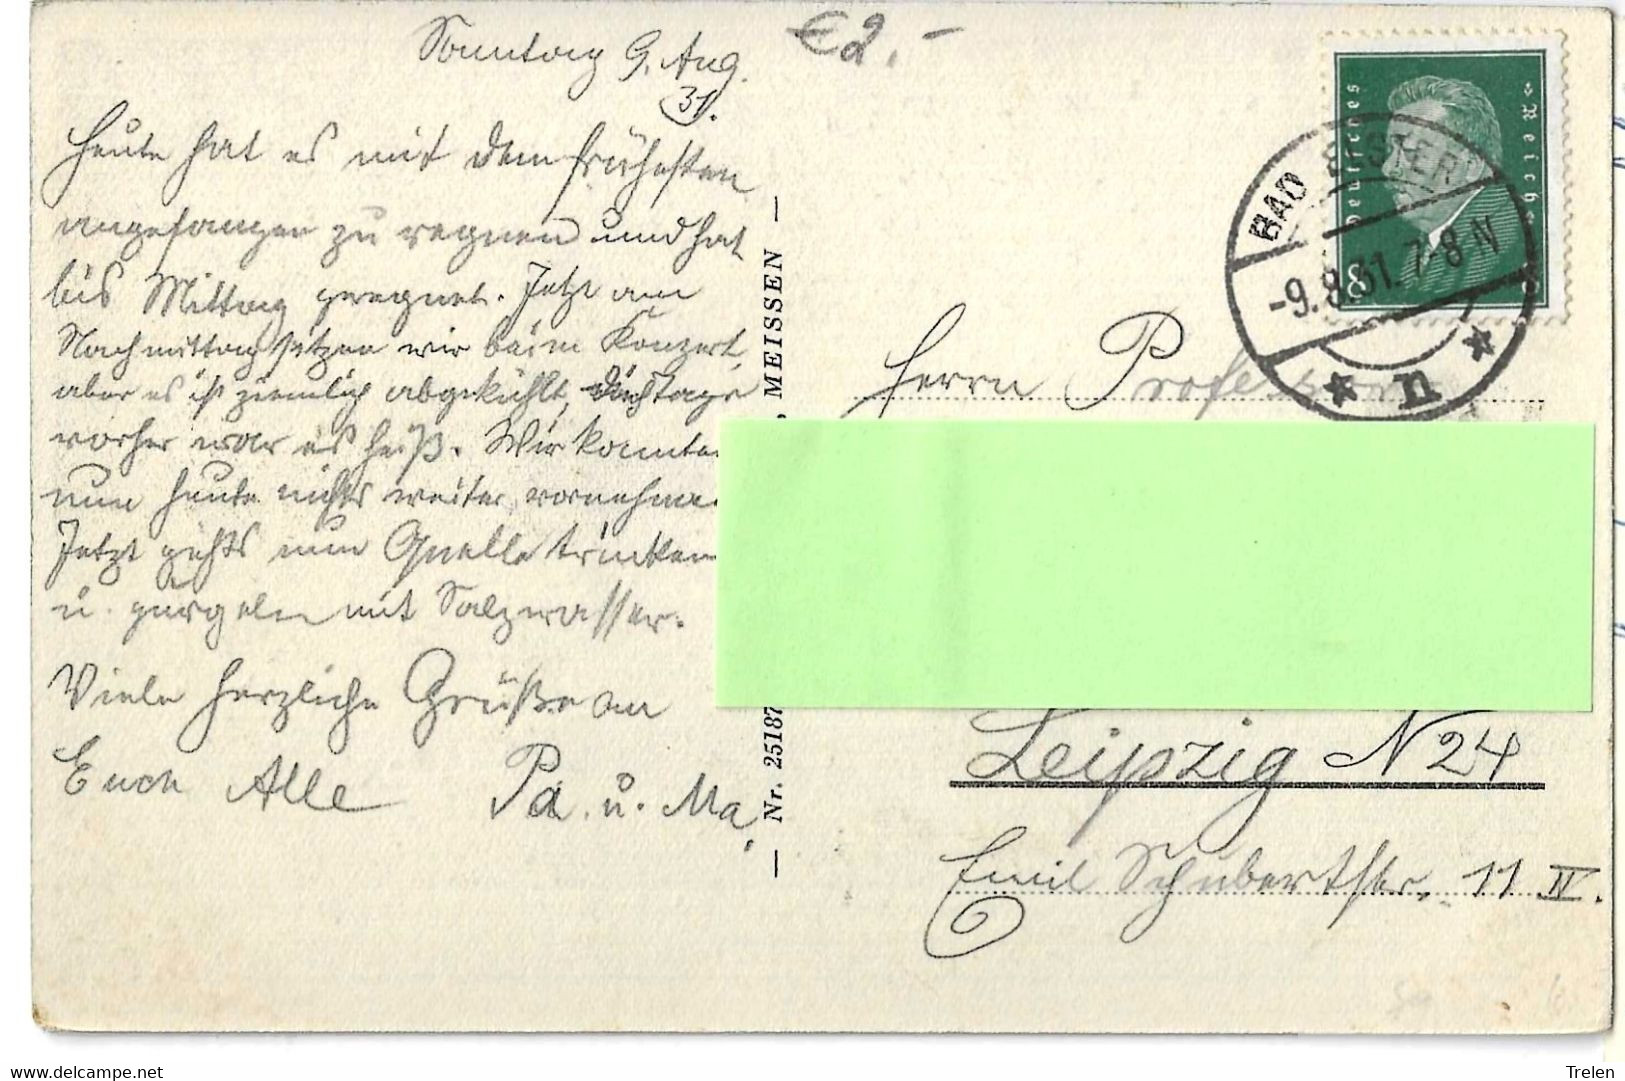 Sonntag 9. Aug.
31.
Heute hat es mit dem frühesten
angefangen zu regnen und hat
bis Mittag geregnet. Jetzt am
Nachmittag sitzen wir beim Konzert,
aber es ist ziemlich abgekühlt, Tage
vorher war es heiß. Wir konnten
nun heute nichts weiter vornehmen
Jetzt gehts nun Quelle trinken
u. gurgeln mit Salzwasser.
Viele herzliche Grüße an
Euch Alle Pa. u. Ma.
€2,-
— MEISSEN
Nr. 25187 —
Deutsches Reich
8
BAD ELSTER
-9.8.31. 7-8 N
* n *
Herrn Professor
Leipzig N 24
Emil Schubertstr. 11 II.
Trelen
www.delcampe.net